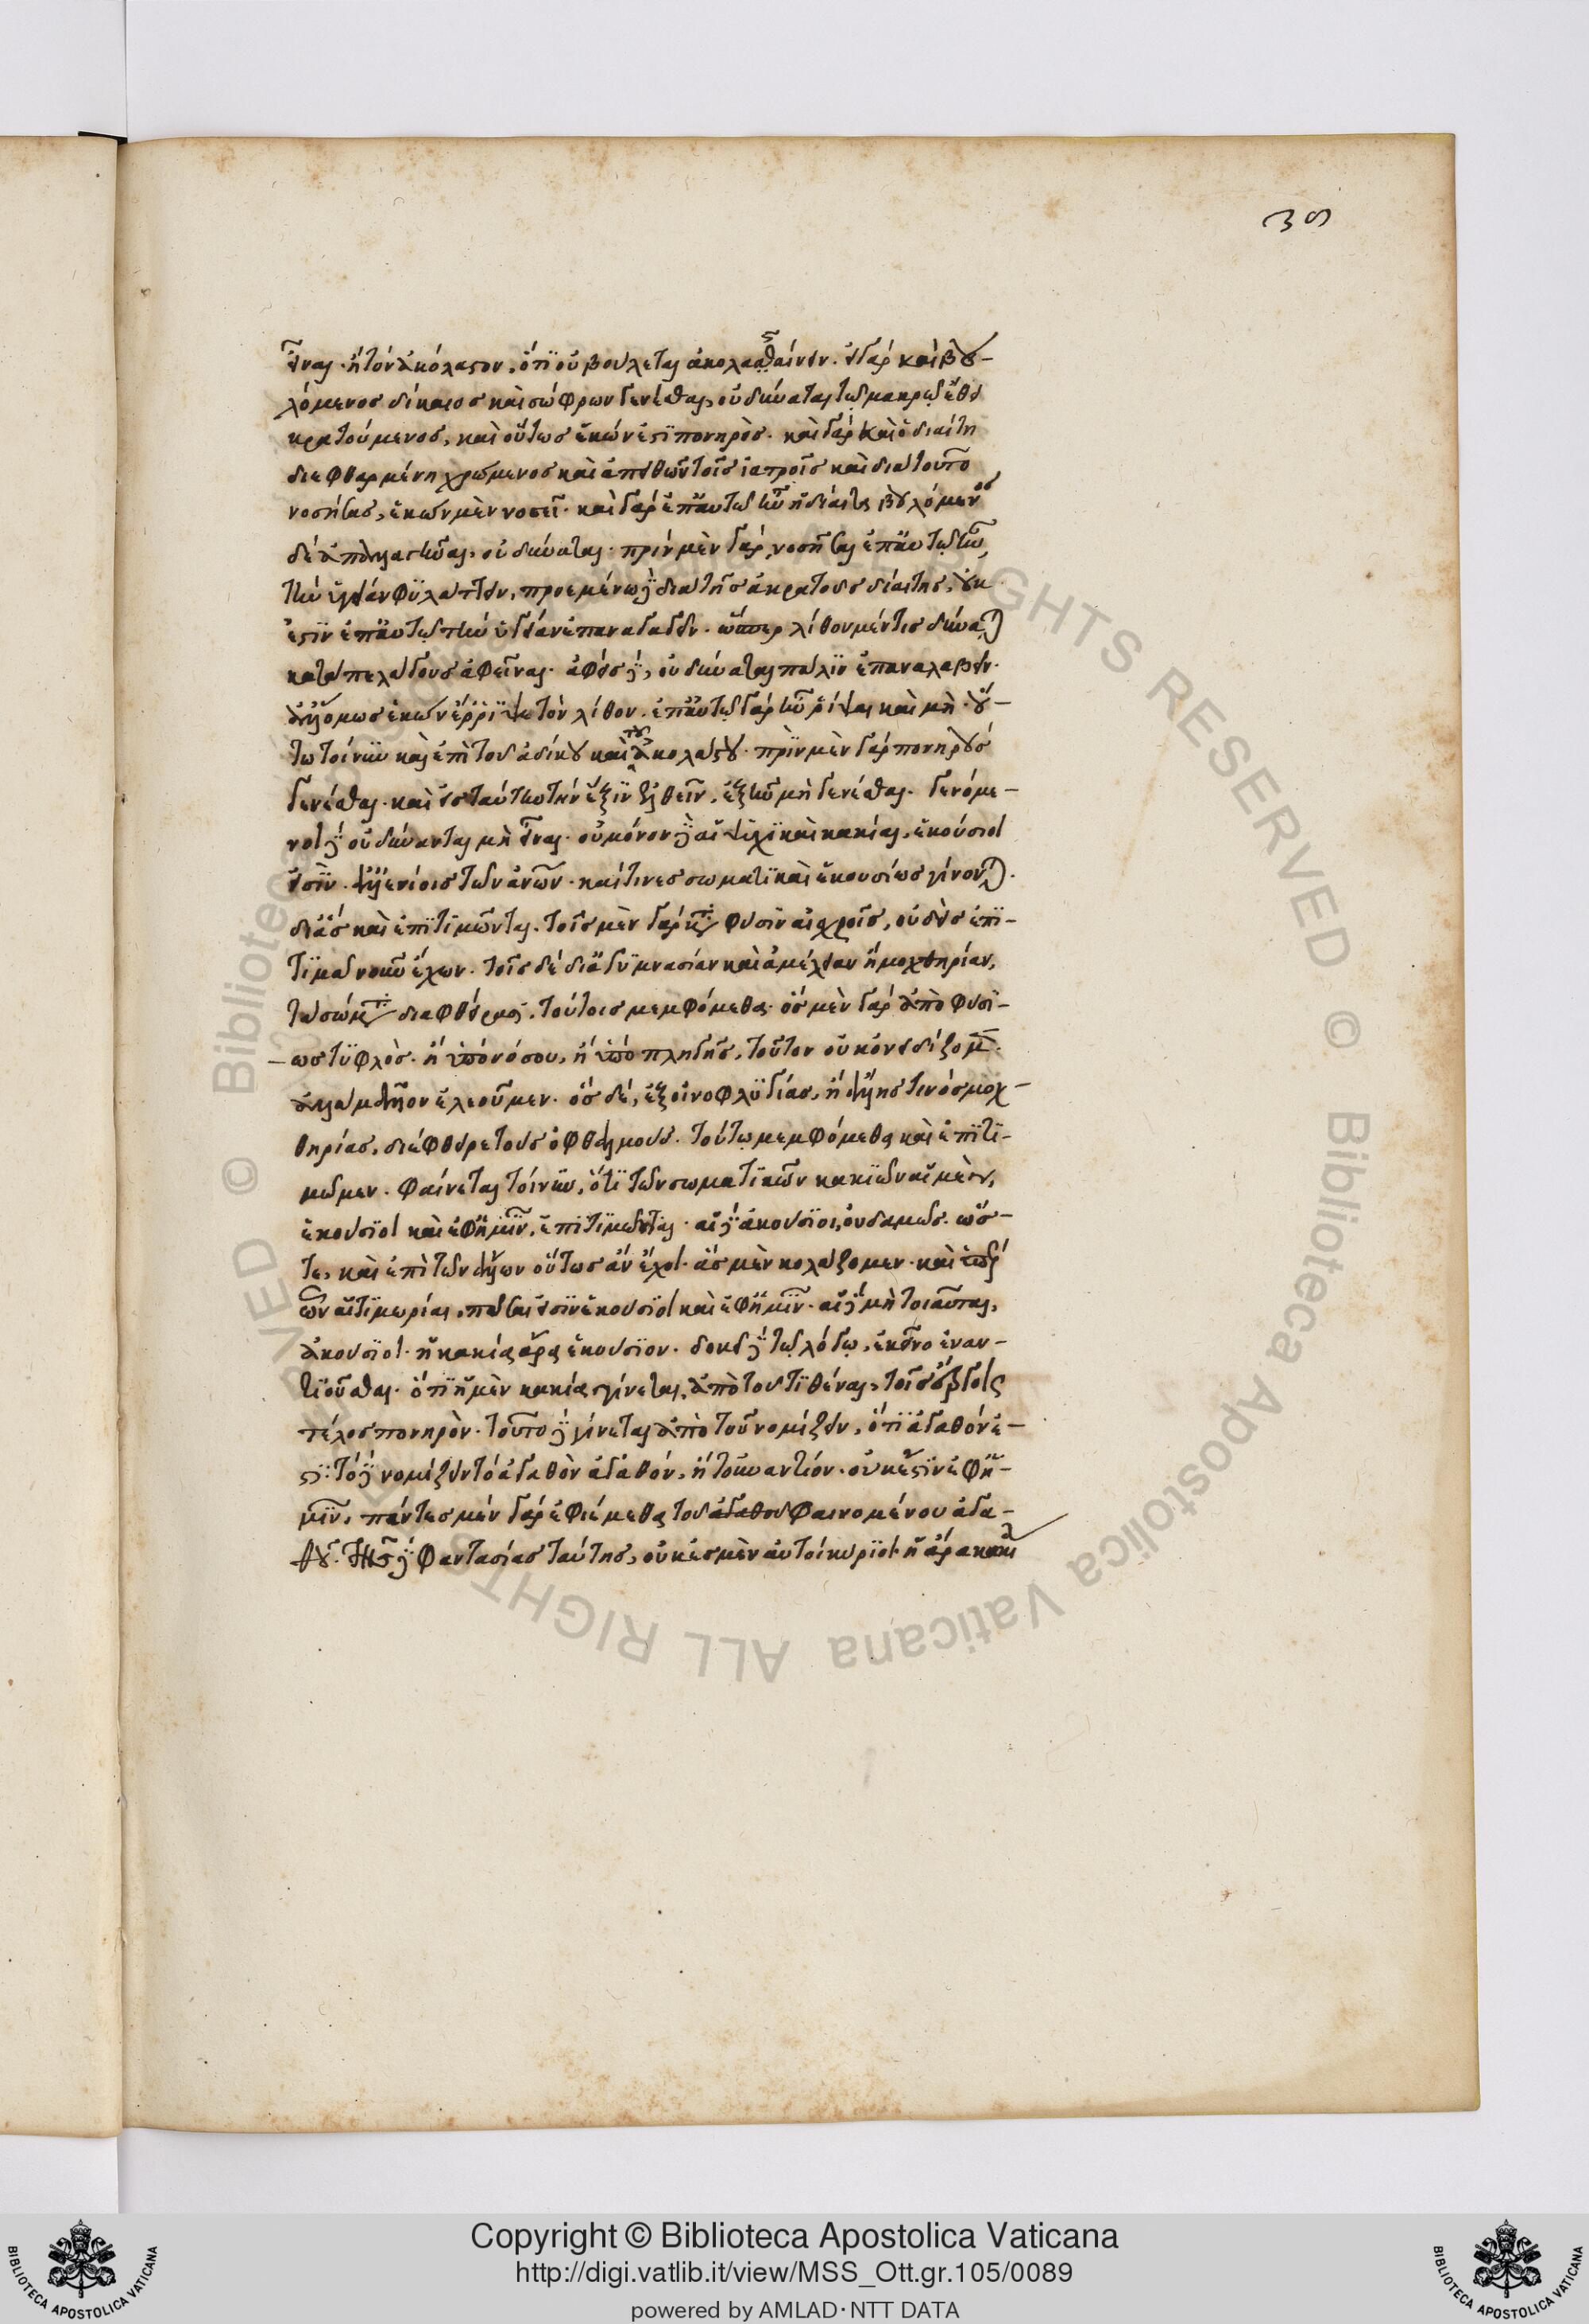 39
εἶναι· ἢ τὸν ἀκόλαστον, ὅτι οὐ βούλεται ἀκολασταίνειν. εἰ γὰρ καὶ βου-
λόμενος δίκαιος καὶ σώφρων γενέσθαι, οὐ δύναται τῷ μακρῷ ἔθει
κρατούμενος, καὶ οὕτως ἑκών ἐστι πονηρὸς. καὶ γὰρ καὶ ὁ διαίτη
διεφθαρμένη χρώμενος καὶ ἀπειθῶν τοῖς ἰατροῖς καὶ διὰ τοῦτο
νοσήσας, ἑκὼν μὲν νοσεῖ. καὶ γὰρ ἐπ' αὐτῷ ἦν ἡ δίαιτα βουλόμενος
δὲ ἀπαλλαγῆναι, οὐ δύναται. πρὶν μὲν γὰρ νοσῆσαι ἐπ' αὐτῷ ἦν
τὴν ὑγείαν φυλάττειν, προεμένω δὲ διὰ τῆς ἀκρατοῦς διαίτης, οὐκ
ἔστιν ἐπ' αὐτῷ τὴν ὑγείαν ἐπαναγαγεῖν. ὥσπερ λίθον μέν τις δύναται
κατὰ πελάγους ἀφεῖναι. ἀφεὶς δὲ, οὐ δύναται πάλιν ἐπαναλαβεῖν.
ἀλλ' ὅμως ἑκὼν ἔρριψε τὸν λίθον. ἐπ' αὐτῷ γὰρ ἦν ῥίψαι καὶ μὴ. οὕ-
τω τοίνυν καὶ ἐπὶ τοῦ ἀδίκου καὶ τοῦ ἀκολάστου. πρὶν μὲν γὰρ πονηροὺς
γενέσθαι. καὶ εἰς ταύτην τὴν ἕξιν ἐλθεῖν, ἐξῆν μὴ γενέσθαι. γενόμε-
νοι δὲ οὐ δύνανται μὴ εἶναι. οὐ μόνον δὲ αἱ ψυχικαὶ κακίαι, ἑκούσιοι
εἰσὶν. ἀλλ' ἐνίοις τῶν ἀνθρώπων. καί τινες σωματικαὶ ἑκουσίως γίνονται.
διὰ ἃς καὶ ἐπιτιμῶνται. τοῖς μὲν γὰρ κατὰ φύσιν αἰσχροῖς, οὐδεὶς ἐπι-
τιμᾷ νοῦν ἔχων. τοῖς δὲ δι' ἀγυμνασίαν καὶ ἀμέλειαν ἢ μοχθηρίαν,
τὸ σῶμα διαφθείρασι, τούτοις μεμφόμεθα. ὃς μὲν γὰρ ἀπὸ φύσε-
ως τυφλὸς. ἢ ὑπὸ νόσου, ἢ ὑπὸ πληγῆς, τοῦτον οὐκ ὀνειδίζομεν.
ἀλλὰ μᾶλλον ἐλεοῦμεν. ὃς δὲ, ἐξ οἰνοφλυγίας, ἢ ἄλλης τινὸς μοχ-
θηρίας, διέφθειρε τοὺς ὀφθαλμοὺς. τούτῳ μεμφόμεθα καὶ ἐπιτι-
μῶμεν. φαίνεται τοίνυν, ὅτι τῶν σωματικῶν κακιῶν αἱ μὲν,
ἑκούσιοι καὶ ἐφ' ἡμῖν, ἐπιτιμῶνται. αἱ δὲ ἀκούσιοι, οὐδαμῶς. ὥσ-
τε, καὶ ἐπὶ τῶν ἄλλων οὕτως ἂν ἔχοι. ἃς μὲν κολάζομεν. καὶ ὑπὲρ
ὧν αἱ τιμωρίαι, πᾶσαι εἰσὶν ἑκούσιοι καὶ ἐφ' ἡμῖν. αἱ δὲ μὴ τοιαῦται,
ἀκούσιοι. ἡ κακία ἄρα ἑκούσιον. δοκεῖ δὲ τῷ λόγῳ, ἐκεῖνο ἐναν-
τιοῦσθαι. ὅτι ἡ μὲν κακία γίνεται, ἀπὸ τοῦ τιθέναι, τοῖς ἔργοις
τέλος πονηρὸν. τοῦτο δὲ γίνεται ἀπὸ τοῦ νομίζειν, ὅτι ἀγαθόν ἐ-
στι. τὸ δὲ νομίζειν τὸ ἀγαθὸν ἀγαθόν, ἢ τοὐναντίον. οὐκ ἔστιν ἐφ' ἡ-
μῖν, πάντες μὲν γὰρ ἐφιέμεθα τοῦ ἀγαθοῦ φαινομένου ἀγα-
θοῦ. τῆς δὲ φαντασίας ταύτης, οὐκ ἐσμὲν αὐτοὶ κύριοι. ἡ ἄρα κακία
Copyright © Biblioteca Apostolica Vaticana
http://digi.vatlib.it/view/MSS_Ott.gr.105/0089
powered by AMLAD · NTT DATA
BIBLIOTECA APOSTOLICA VATICANA
BIBLIOTECA APOSTOLICA VATICANA
© Biblioteca Apostolica Vaticana ALL RIGHTS RESERVED